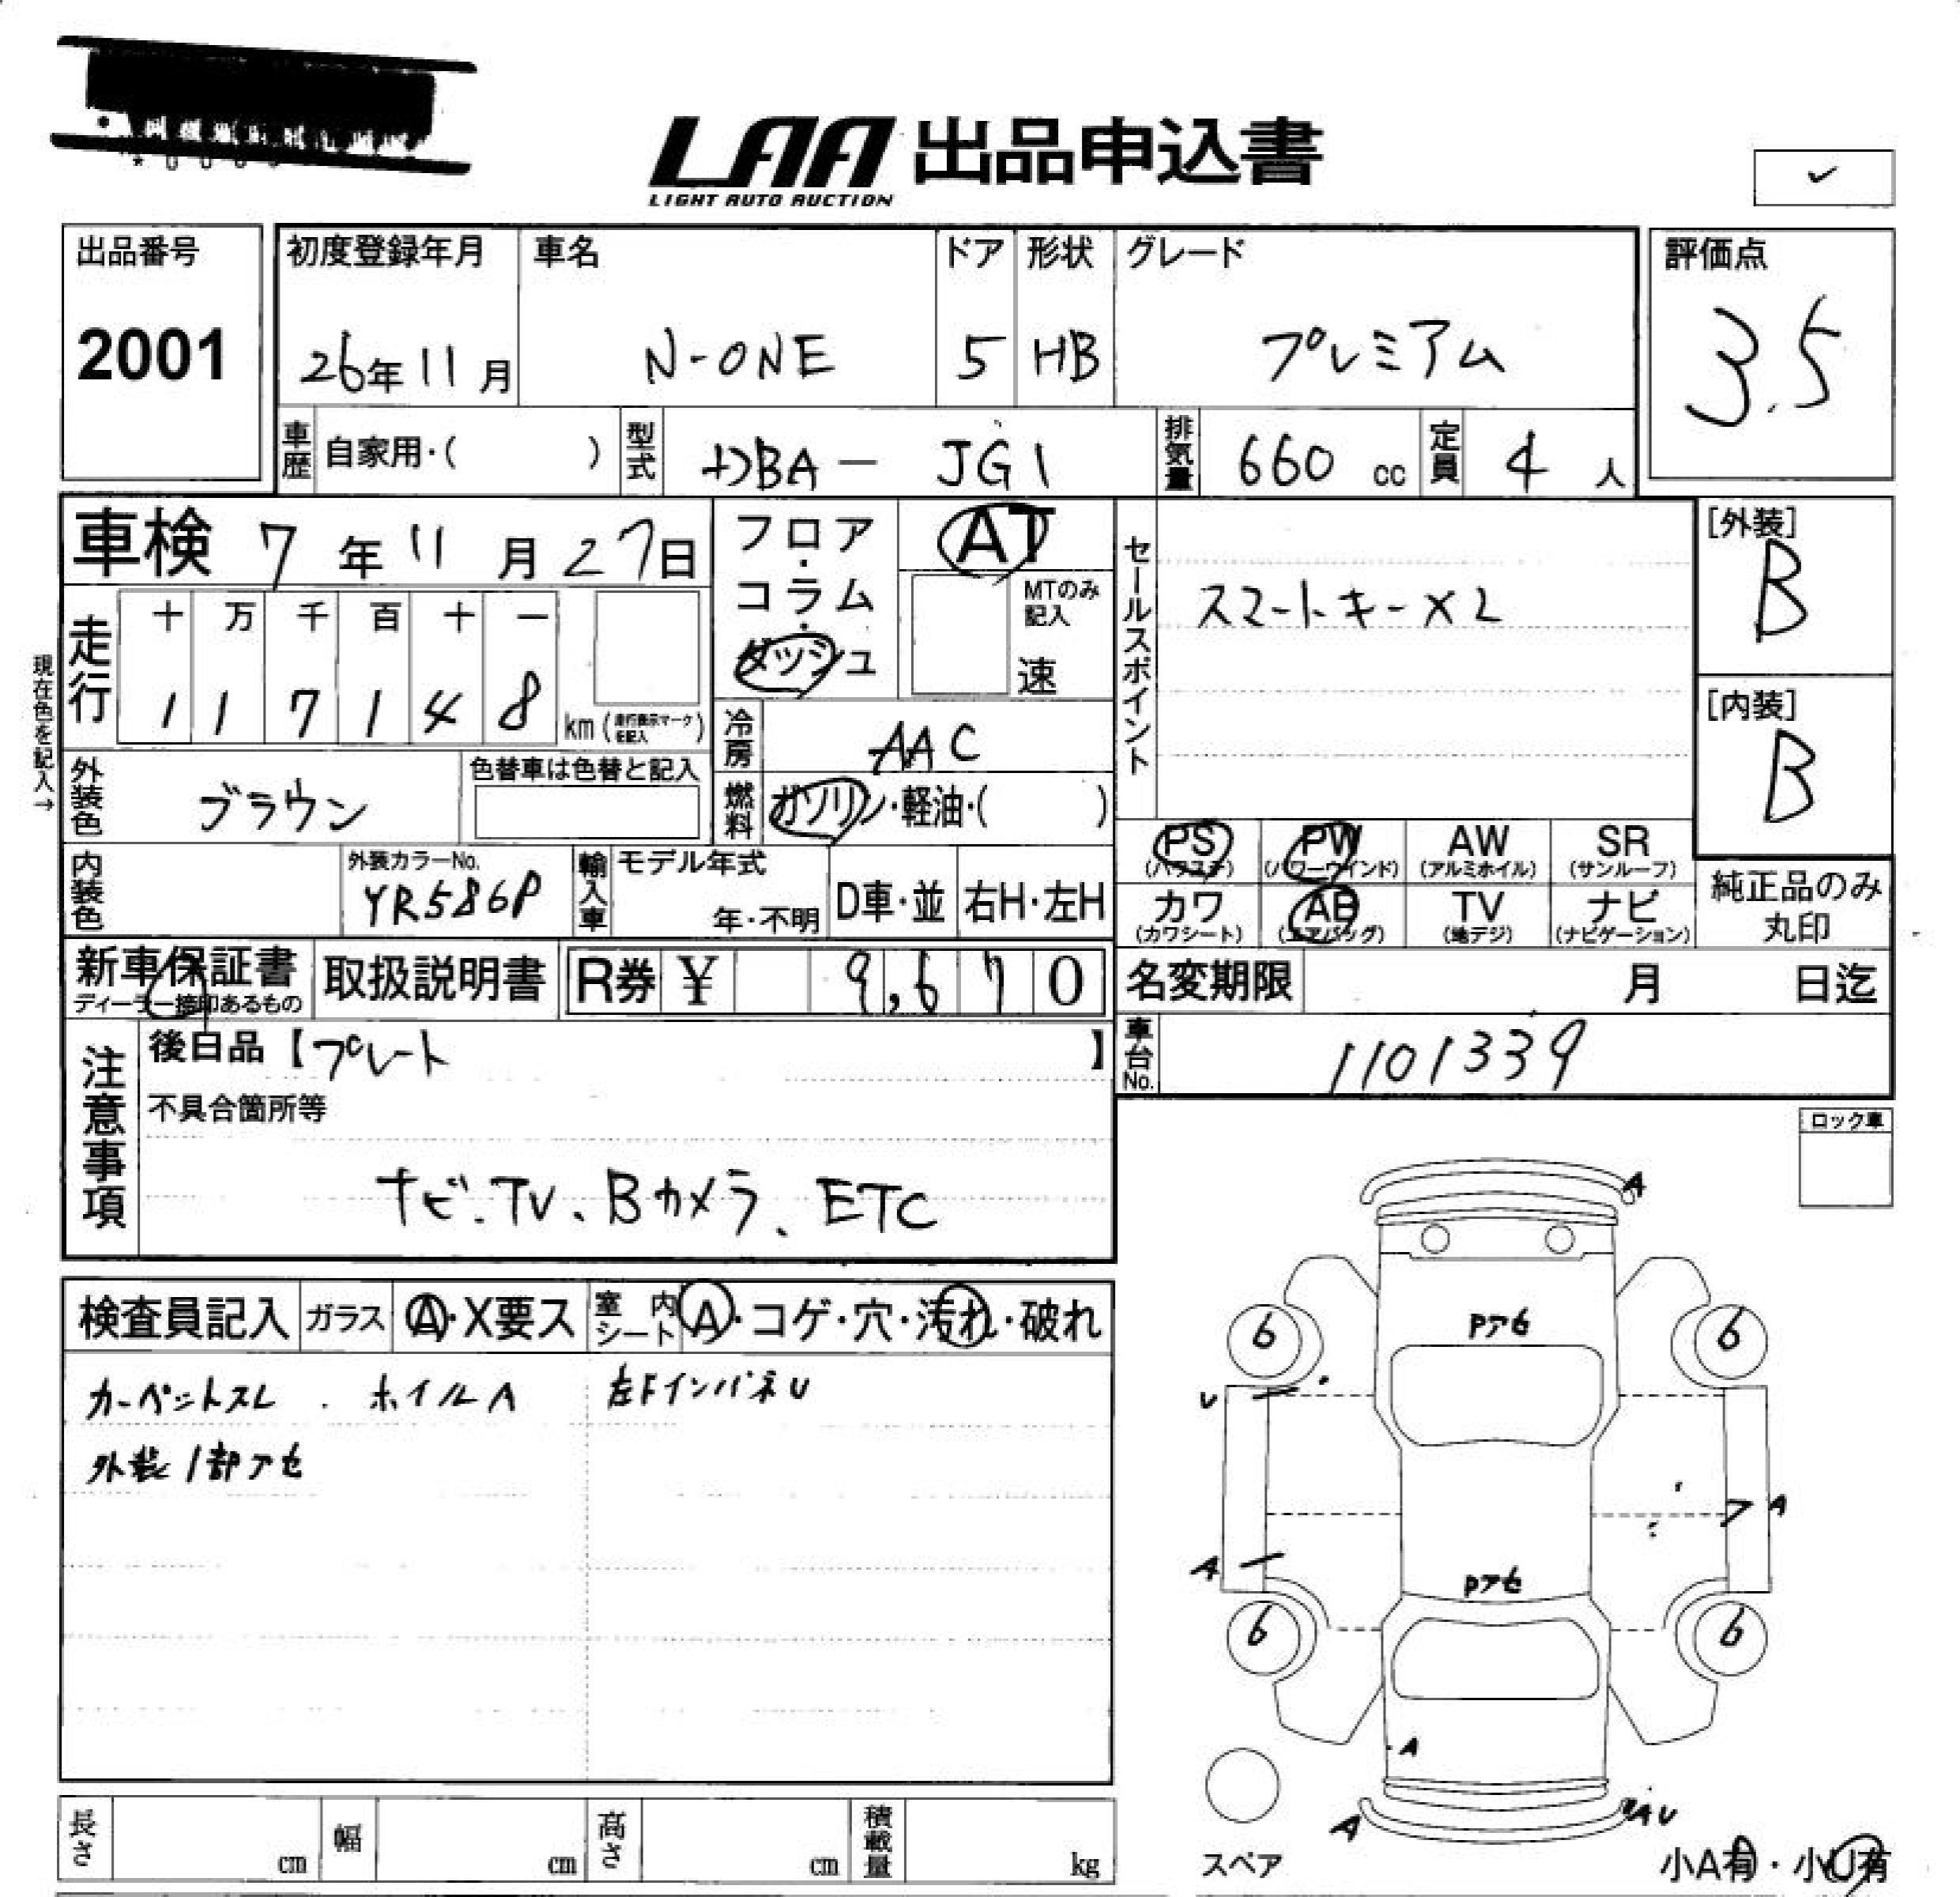 LAA 出品申込書
LIGHT AUTO AUCTION
✓
出品番号
2001
初度登録年月
26年11月
車名
N-ONE
ドア
5
形状
HB
グレード
プレミアム
評価点
3.5
車歴
自家用・( )
型式
DBA - JG1
排気量
660 cc
定員
4 人
車検 7年11月27日
フロア・コラム・ダッシュ
AT
MTのみ記入
速
セールスポイント
スマートキー×2
[外装]
B
[内装]
B
現在色を記入→
走行
十 万 千 百 十 一
1 1 7 1 4 8
km (走行表示マークを記入)
冷房
AAC
外装色
ブラウン
色替車は色替と記入
燃料
ガソリン・軽油・( )
内装色
外装カラーNo.
YR586P
輸入車
モデル年式
年・不明
D車・並
右H・左H
PS
(パワステ)
PW
(パワーウインド)
AW
(アルミホイル)
SR
(サンルーフ)
カワ
(カワシート)
AB
(エアバッグ)
TV
(地デジ)
ナビ
(ナビゲーション)
純正品のみ
丸印
新車保証書
ディーラー捺印あるもの
取扱説明書
R券 ¥ 9,670
名変期限 月 日迄
車台No.
1101339
注意事項
後日品【プレート】
不具合箇所等
ナビ、TV、Bカメラ、ETC
ロック車
検査員記入
ガラス
A・X要ス
室内シート
A・コゲ・穴・汚れ・破れ
カーペットスレ . ホイルA
左FインパネU
外装1部アセ
A
Pアセ
6
6
U
A
A
Pアセ
6
6
A
A
AU
スペア
小A有・小U有
長さ
cm
幅
cm
高さ
cm
積載量
kg